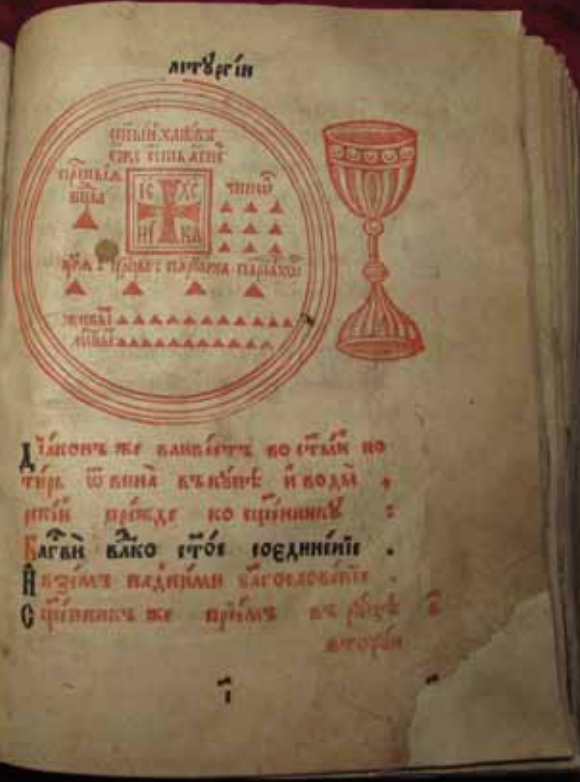 литꙋргїи
ст҃ый хлѣбъ
ІС ХС
НИ КА
чинѡ
живыѧ
Дїаконъ же вливаетъ во ст҃ый по
тирь ѿ вина вкꙋпѣ и воды
рекїи прежде ко сщ҃енникꙋ :
Бл҃гви влⷣко ст҃ое соединенїе .
И вземъ над ними бл҃гословенїе .
Сщ҃енникъ же прїемъ въ рꙋцѣ
вторꙋю
і